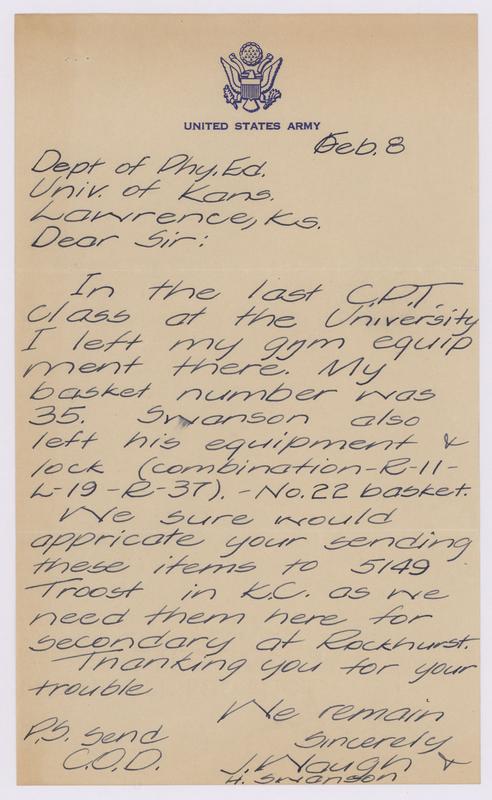 UNITED STATES ARMY
Feb. 8
Dept of Phy. Ed.
Univ. of Kans.
Lawrence, Ks.
Dear Sir:
In the last C.P.T.
class at the University
I left my gym equip
ment there. My
basket number was
35. Swanson also
left his equipment &
lock (combination-R-11-
L-19-R-37). - No. 22 basket.
We sure would
appricate your sending
these items to 5149
Troost in K.C. as we
need them here for
secondary at Rockhurst.
Thanking you for your
trouble
We remain
Sincerely
J. Waugh &
H. Swanson
P.S. send
C.O.D.